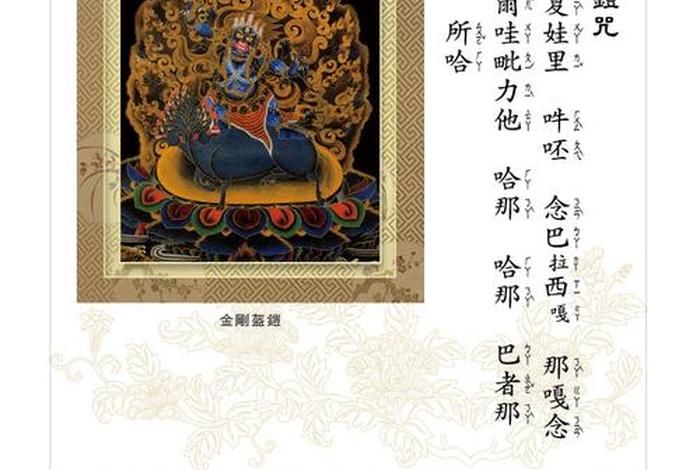 鎧咒
夏娃里 吽呸 念巴拉西嘎 那嘎念
爾哇毗力他 哈那 哈那 巴者那
所哈
金剛盔鎧